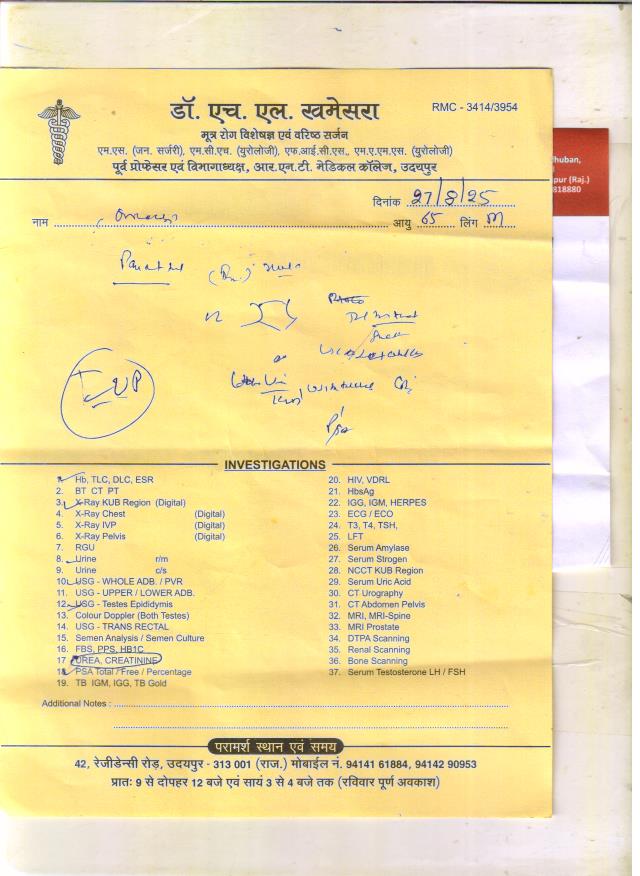 डॉ. एच. एल. खमेसरा
RMC - 3414/3954
मूत्र रोग विशेषज्ञ एवं वरिष्ठ सर्जन
एम.एस. (जन. सर्जरी), एम.सी.एच. (युरोलोजी), एफ.आई.सी.एस., एम.ए.एम.एस. (युरोलोजी)
पूर्व प्रोफेसर एवं विभागाध्यक्ष, आर.एन.टी. मेडिकल कॉलेज, उदयपुर
दिनांक 27/8/25
नाम आयु 65 लिंग M
IVP
INVESTIGATIONS
1. Hb, TLC, DLC, ESR
2. BT CT PT
3. X-Ray KUB Region (Digital)
4. X-Ray Chest (Digital)
5. X-Ray IVP (Digital)
6. X-Ray Pelvis (Digital)
7. RGU
8. Urine r/m
9. Urine c/s
10. USG - WHOLE ADB. / PVR
11. USG - UPPER / LOWER ADB.
12. USG - Testes Epididymis
13. Colour Doppler (Both Testes)
14. USG - TRANS RECTAL
15. Semen Analysis / Semen Culture
16. FBS, PPS, HB1C
17 UREA, CREATININE
18. PSA Total / Free / Percentage
19. TB IGM, IGG, TB Gold
20. HIV, VDRL
21. HbsAg
22. IGG, IGM, HERPES
23. ECG / ECO
24. T3, T4, TSH,
25. LFT
26. Serum Amylase
27. Serum Strogen
28. NCCT KUB Region
29. Serum Uric Acid
30. CT Urography
31. CT Abdomen Pelvis
32. MRI, MRI-Spine
33. MRI Prostate
34. DTPA Scanning
35. Renal Scanning
36. Bone Scanning
37. Serum Testosterone LH / FSH
Additional Notes :
परामर्श स्थान एवं समय
42, रेजीडेन्सी रोड़, उदयपुर - 313 001 (राज.) मोबाईल नं. 94141 61884, 94142 90953
प्रातः 9 से दोपहर 12 बजे एवं सायं 3 से 4 बजे तक (रविवार पूर्ण अवकाश)
dhuban,
pur (Raj.)
818880